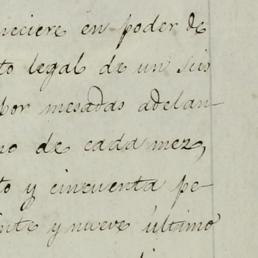 neciere en poder de
to legal de un seis
por mesadas adelan-
no de cada mez,
to y cincuenta pe-
inte y nueve último